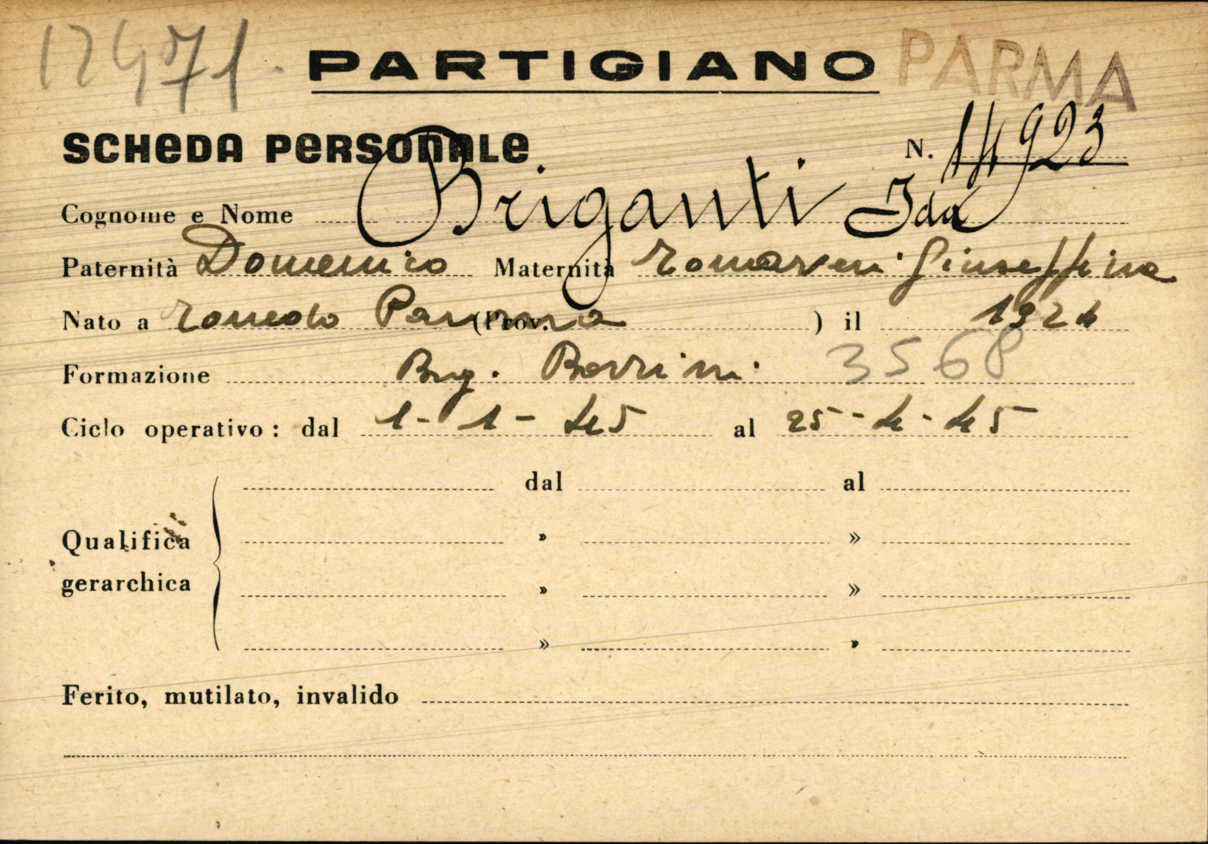 12471
PARTIGIANO PARMA
SCHEDA PERSONALE N. 14923
Cognome e Nome Briganti Ida
Paternità Domenico Maternità Giuseppina
Nato a Parma (Prov. ) il 1924
Formazione Brg. 3568
Ciclo operativo: dal 1-1-45 al 25-4-45
dal al
Qualifica » »
gerarchica » »
» »
Ferito, mutilato, invalido